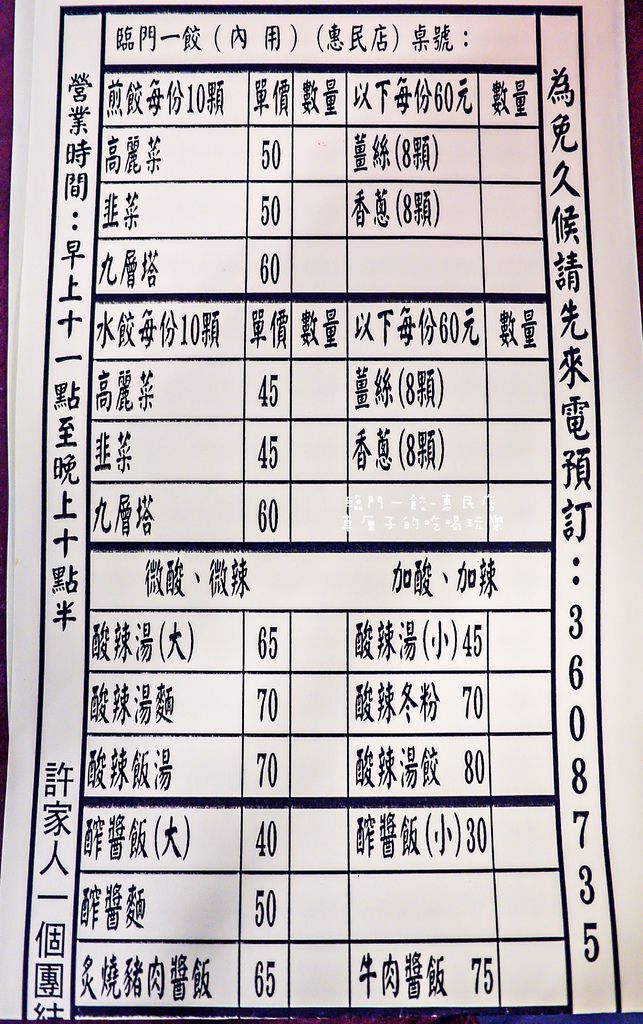 臨門一餃(內用)(惠民店)桌號：
煎餃每份10顆 單價 數量 以下每份60元 數量
高麗菜 50 薑絲(8顆)
韭菜 50 香蔥(8顆)
九層塔 60
水餃每份10顆 單價 數量 以下每份60元 數量
高麗菜 45 薑絲(8顆)
韭菜 45 香蔥(8顆)
九層塔 60
臨門一餃-惠民店
直厘子的吃喝玩樂
微酸、微辣 加酸、加辣
酸辣湯(大) 65 酸辣湯(小)45
酸辣湯麵 70 酸辣冬粉 70
酸辣飯湯 70 酸辣湯餃 80
醡醬飯(大) 40 醡醬飯(小)30
醡醬麵 50
炙燒豬肉醬飯 65 牛肉醬飯 75
為免久候請先來電預訂：3608735
營業時間：早上十一點至晚上十點半
許家人一個團結